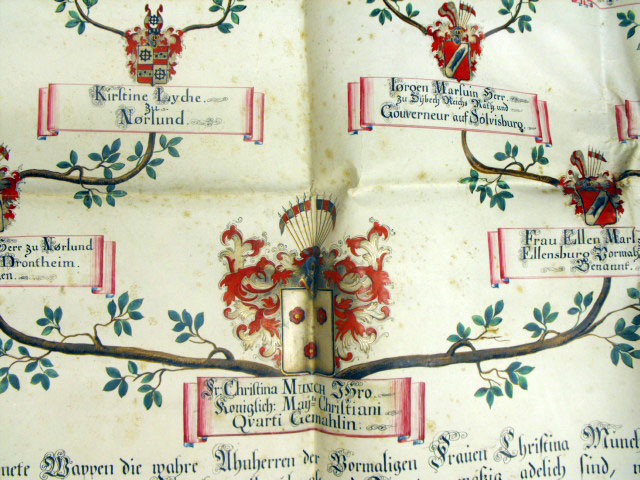 Kirstine Lyche.
zu
Nørlund.
Jørgen Marsvin Herr
zu Dybeck Reichs Raht und
Gouverneur auf Sölvisburg
Herr zu Nørlund
Drontheim.
Frau Ellen Mars
Ellensburg Vormal
Genannt.
Fr: Christina Munch Ihro
Königlich: Mayts Christiani
Qvarti Gemahlin:
nete Wappen die wahre Ahnherren der Vormaligen Frauen Christina Munck
adelich sind,